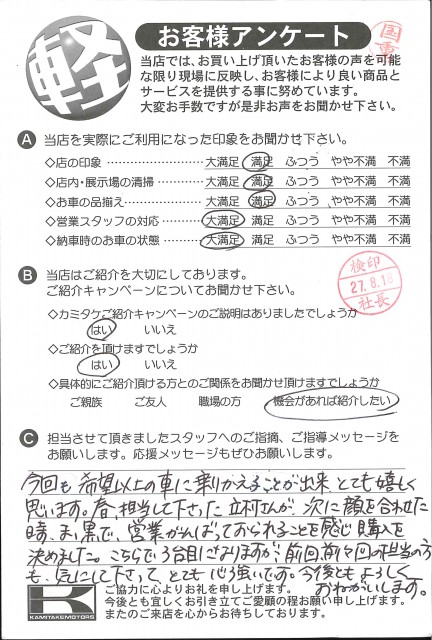 軽
お客様アンケート
国重
当店では、お買い上げ頂いたお客様の声を可能
な限り現場に反映し、お客様により良い商品と
サービスを提供する事に努めています。
大変お手数ですが是非お声をお聞かせ下さい。
A 当店を実際にご利用になった印象をお聞かせ下さい。
◇店の印象 大満足 満足 ふつう やや不満 不満
◇店内・展示場の清掃 大満足 満足 ふつう やや不満 不満
◇お車の品揃え 大満足 満足 ふつう やや不満 不満
◇営業スタッフの対応 大満足 満足 ふつう やや不満 不満
◇納車時のお車の状態 大満足 満足 ふつう やや不満 不満
B 当店はご紹介を大切にしております。
ご紹介キャンペーンについてお聞かせ下さい。
検印
27.8.18
社長
◇カミタケご紹介キャンペーンのご説明はありましたでしょうか
はい いいえ
◇ご紹介を頂けますでしょうか
はい いいえ
◇具体的にご紹介頂ける方とのご関係をお聞かせ頂けますでしょうか
ご親族 ご友人 職場の方 機会があれば紹介したい
C 担当させて頂きましたスタッフへのご指摘、ご指導メッセージを
お願いします。応援メッセージもぜひお願いします。
今回も希望以上の車に乗りかえることが出来、とても嬉しく
思います。春、担当して下さった立村さんが、次に顔を合わせた
時、まっ黒で、営業がんばっておられることを感じ購入を
決めました。こちらで3台目になりますが、前回、前々回の担当の方
も、気にして下さって、とても心強いです。今後ともよろしく
おねがいします。
K
KAMITAKEMOTORS
ご協力に心よりお礼を申し上げます。
今後とも宜しくお引き立てご愛顧の程お願い申し上げます。
またのご来店を心からお待ちしております。